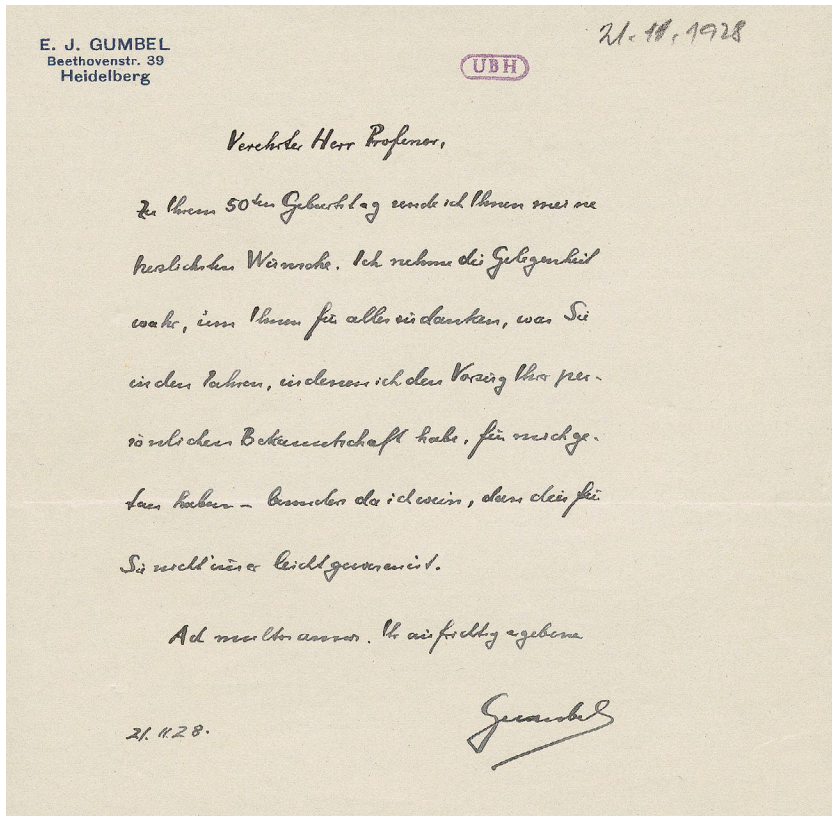 E. J. GUMBEL
Beethovenstr. 39
Heidelberg
21.11.1928
UBH
Verehrter Herr Professor,
Zu Ihrem 50ten Geburtstag sende ich Ihnen meine
herzlichsten Wünsche. Ich nehme die Gelegenheit
wahr, um Ihnen für alles zu danken, was Sie
in den Jahren, in denen ich den Vorzug Ihrer per-
sönlichen Bekanntschaft habe, für mich ge-
tan haben - besonders da ich weiss, dass dies für
Sie nicht immer leicht gewesen ist.
Ad multos annos. Ihr aufrichtig ergebener
Gumbel
21.11.28.